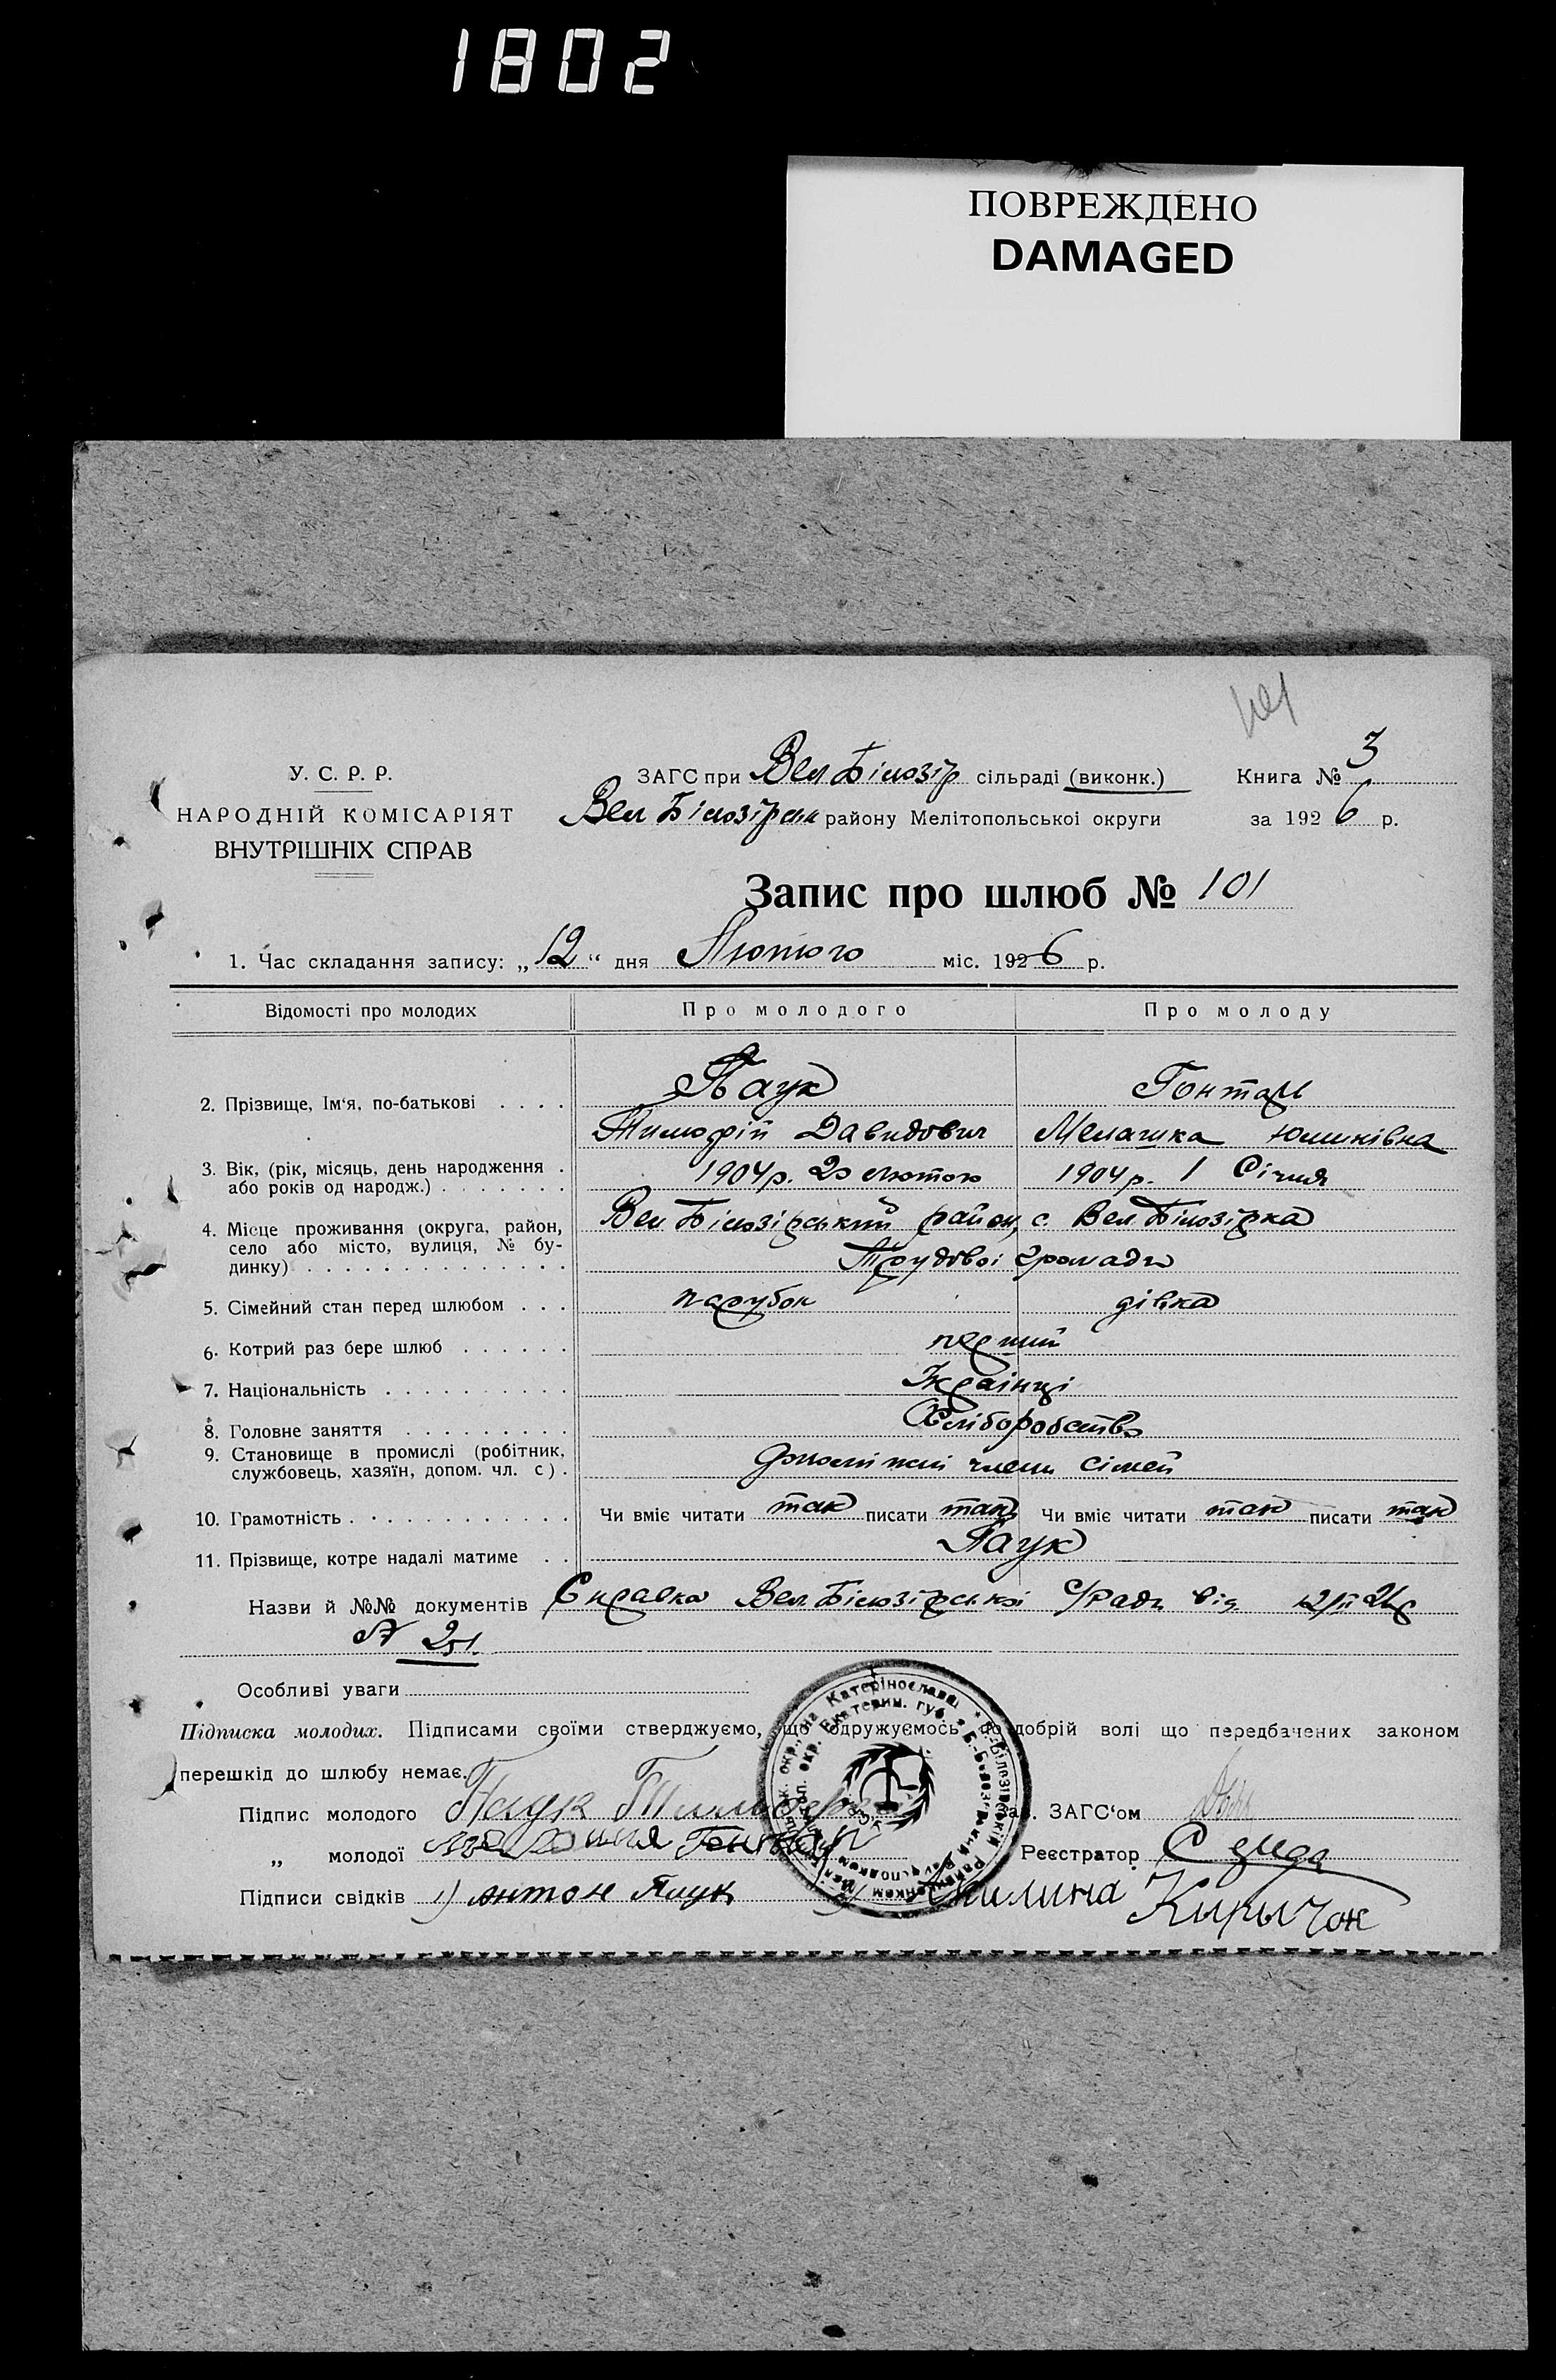 1802
ПОВРЕЖДЕНО
DAMAGED
У. С. Р. Р.
НАРОДНІЙ КОМІСАРІЯТ
ВНУТРІШНІХ СПРАВ
ЗАГС при Вел Білозір сільраді (виконк.)
Вел Білозірськ району Мелітопольської округи
Книга № 3
за 1926 р.
Запис про шлюб № 101
1. Час складання запису: „12“ дня Лютого міс. 1926 р.
Відомості про молодих Про молодого Про молоду
Паук Гонтар
2. Прізвище, Ім‘я, по-батькові . . . .
Тимофій Давидович Мелашка
3. Вік, (рік, місяць, день народження .
або років од народж.) . . . . . . . 1904р. 20 лютого 1904р. 1 Січня
4. Місце проживання (округа, район,
село або місто, вулиця, № бу-
динку) . . . . . . . . . . . . . .
Вел Білозірський район, с. Вел. Білозірка
Трудової громади
5. Сімейний стан перед шлюбом . . . парубок дівка
6. Котрий раз бере шлюб . . . . . . перший
7. Національність . . . . . . . . . . Українці
8. Головне заняття . . . . . . . . . Хліборобство
9. Становище в промислі (робітник,
службовець, хазяїн, допом. чл. с) . члени сімей
10. Грамотність . . . . . . . . . . . . Чи вміє читати так писати так Чи вміє читати так писати так
11. Прізвище, котре надалі матиме . . Паук
Назви й №№ документів Справка Вел. Білозірської с/Ради від 12/II 26р
№ 251.
Особливі уваги
Підписка молодих. Підписами своїми стверджуємо, що одружуємось по добрій волі що передбачених законом
перешкід до шлюбу немає.
Підпис молодого Паук Зав. ЗАГС‘ом
„ молодої Гонтар Реєстратор
Підписи свідків 1) антон Паук 2) Киричок